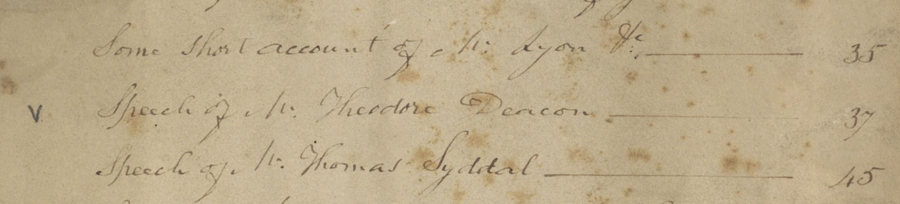 Some short account of Mr. Lyon &c. 35
v Speech of Mr. Theodore Deacon 37
Speech of Mr. Thomas Syddal 45